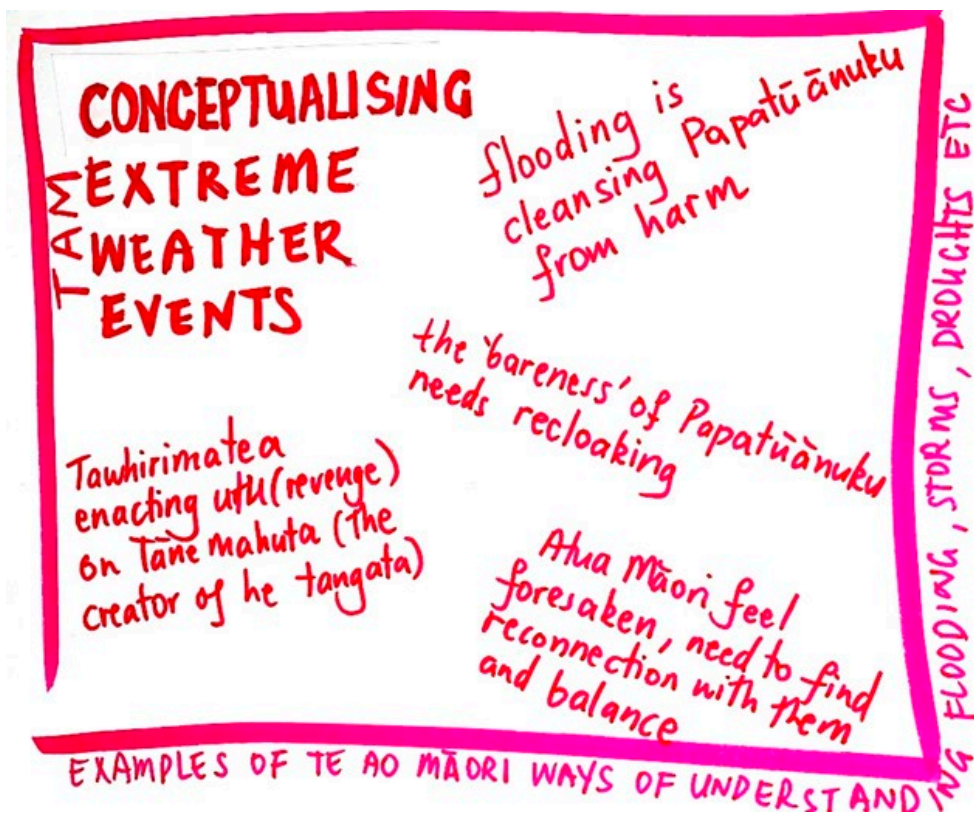 CONCEPTUALISING
TAM
EXTREME
WEATHER
EVENTS
flooding is
cleansing Papatūānuku
from harm
the 'bareness' of Papatūānuku
needs recloaking
Tawhirimatea
enacting utu (revenge)
on Tāne mahuta (the
creator of he tangata)
Atua Māori feel
foresaken, need to find
reconnection with them
and balance
EXAMPLES OF TE AO MĀORI WAYS OF UNDERSTANDING FLOODING, STORMS, DROUGHTS ETC